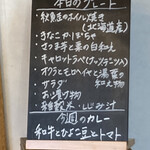 本日のプレート
・秋鮭のホイル焼き
(北海道産)
・きなこかぼちゃ
・さつま芋と栗の白和え
・キャロットラペ
・オクラとモロヘイヤと湯葉の
和え物
・サラダ
・お漬け物
・雑穀米・しじみ汁
今週のカレー
和牛とひよこ豆とトマト